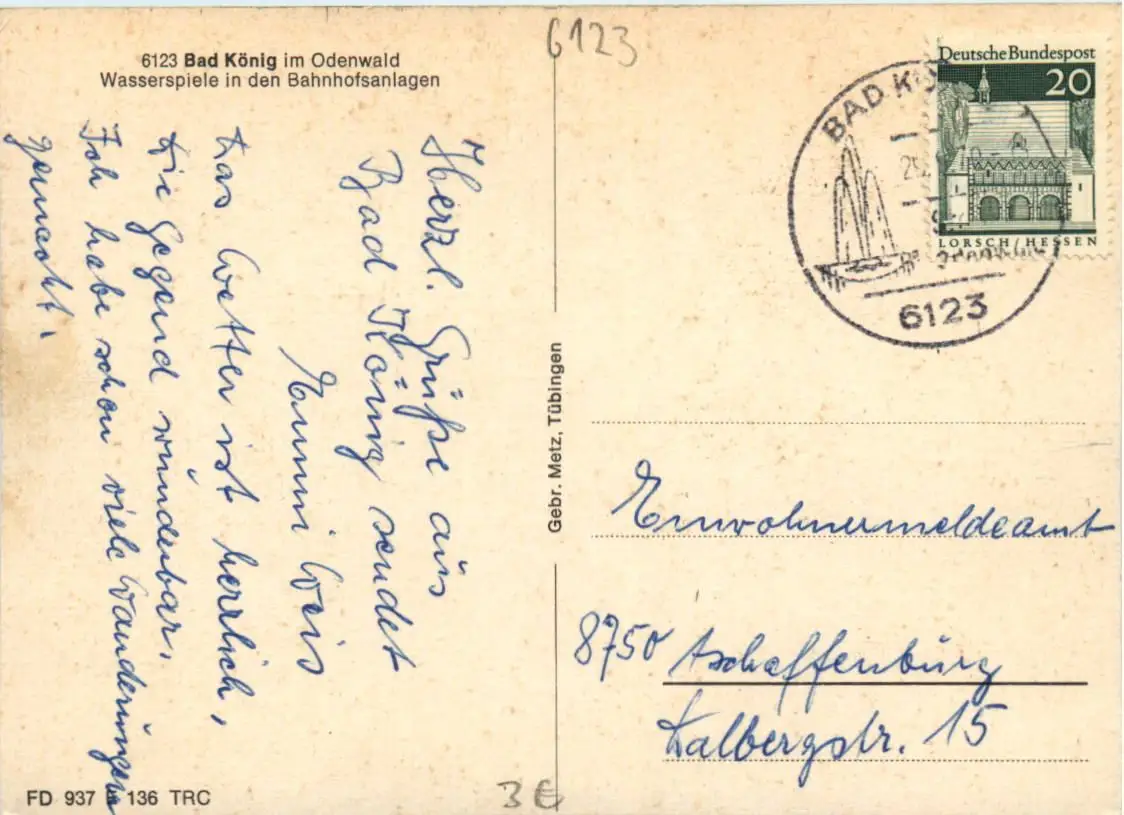 6123
6123 Bad König im Odenwald
Wasserspiele in den Bahnhofsanlagen
Herzl. Grüße aus
Bad König sendet
Emmi Weis
das Wetter ist herrlich,
die Gegend wunderbar.
Ich habe schon viele Wanderungen
gemacht.
FD 937 136 TRC
3 €
Gebr. Metz, Tübingen
Deutsche Bundespost
20
LORSCH/HESSEN
BAD KÖ
6123
Einwohnermeldeamt
8750 Aschaffenburg
Dalbergstr. 15